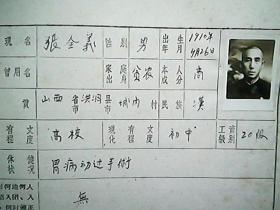 現名 張全義 性别 男 出生年月 1910年4月26日
曾用名 家庭出身 贫农 本人成分 商
籍貫 山西省洪洞县城内村 民族 漢
有何文化程度 高校 現有文化程度 初中 工資級别 20級
身体健康状况 胃病动过手術
無